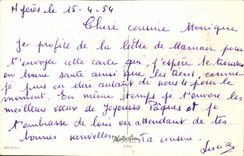 Hyères le 15-4-54
Chère cousine Monique
Je profite de la lettre de Maman pour
t'envoye cette carte qui j'espère te trouvera
en bonne santé ainsi que les tiens, comme
je puis en dire autant de nous pour le
moment. En même temps je t'envoie les
meilleurs vœux de Joyeuses Pâques et je
t'embrasse de loin en attendant de tes
bonnes nouvelles. Ta cousine
Lucie